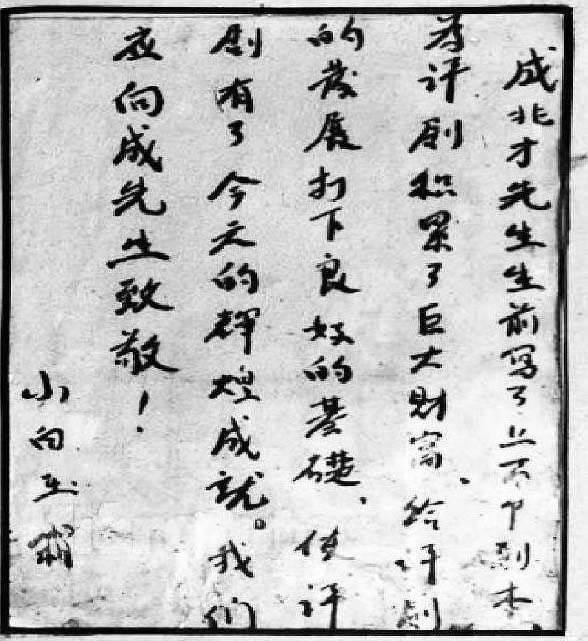 成兆才先生生前写了上百个剧本,
为评剧积累了巨大财富、给评剧
的发展打下良好的基礎、使评
剧有了今天的輝煌成就。我们
应向成先生致敬！
小白玉霜